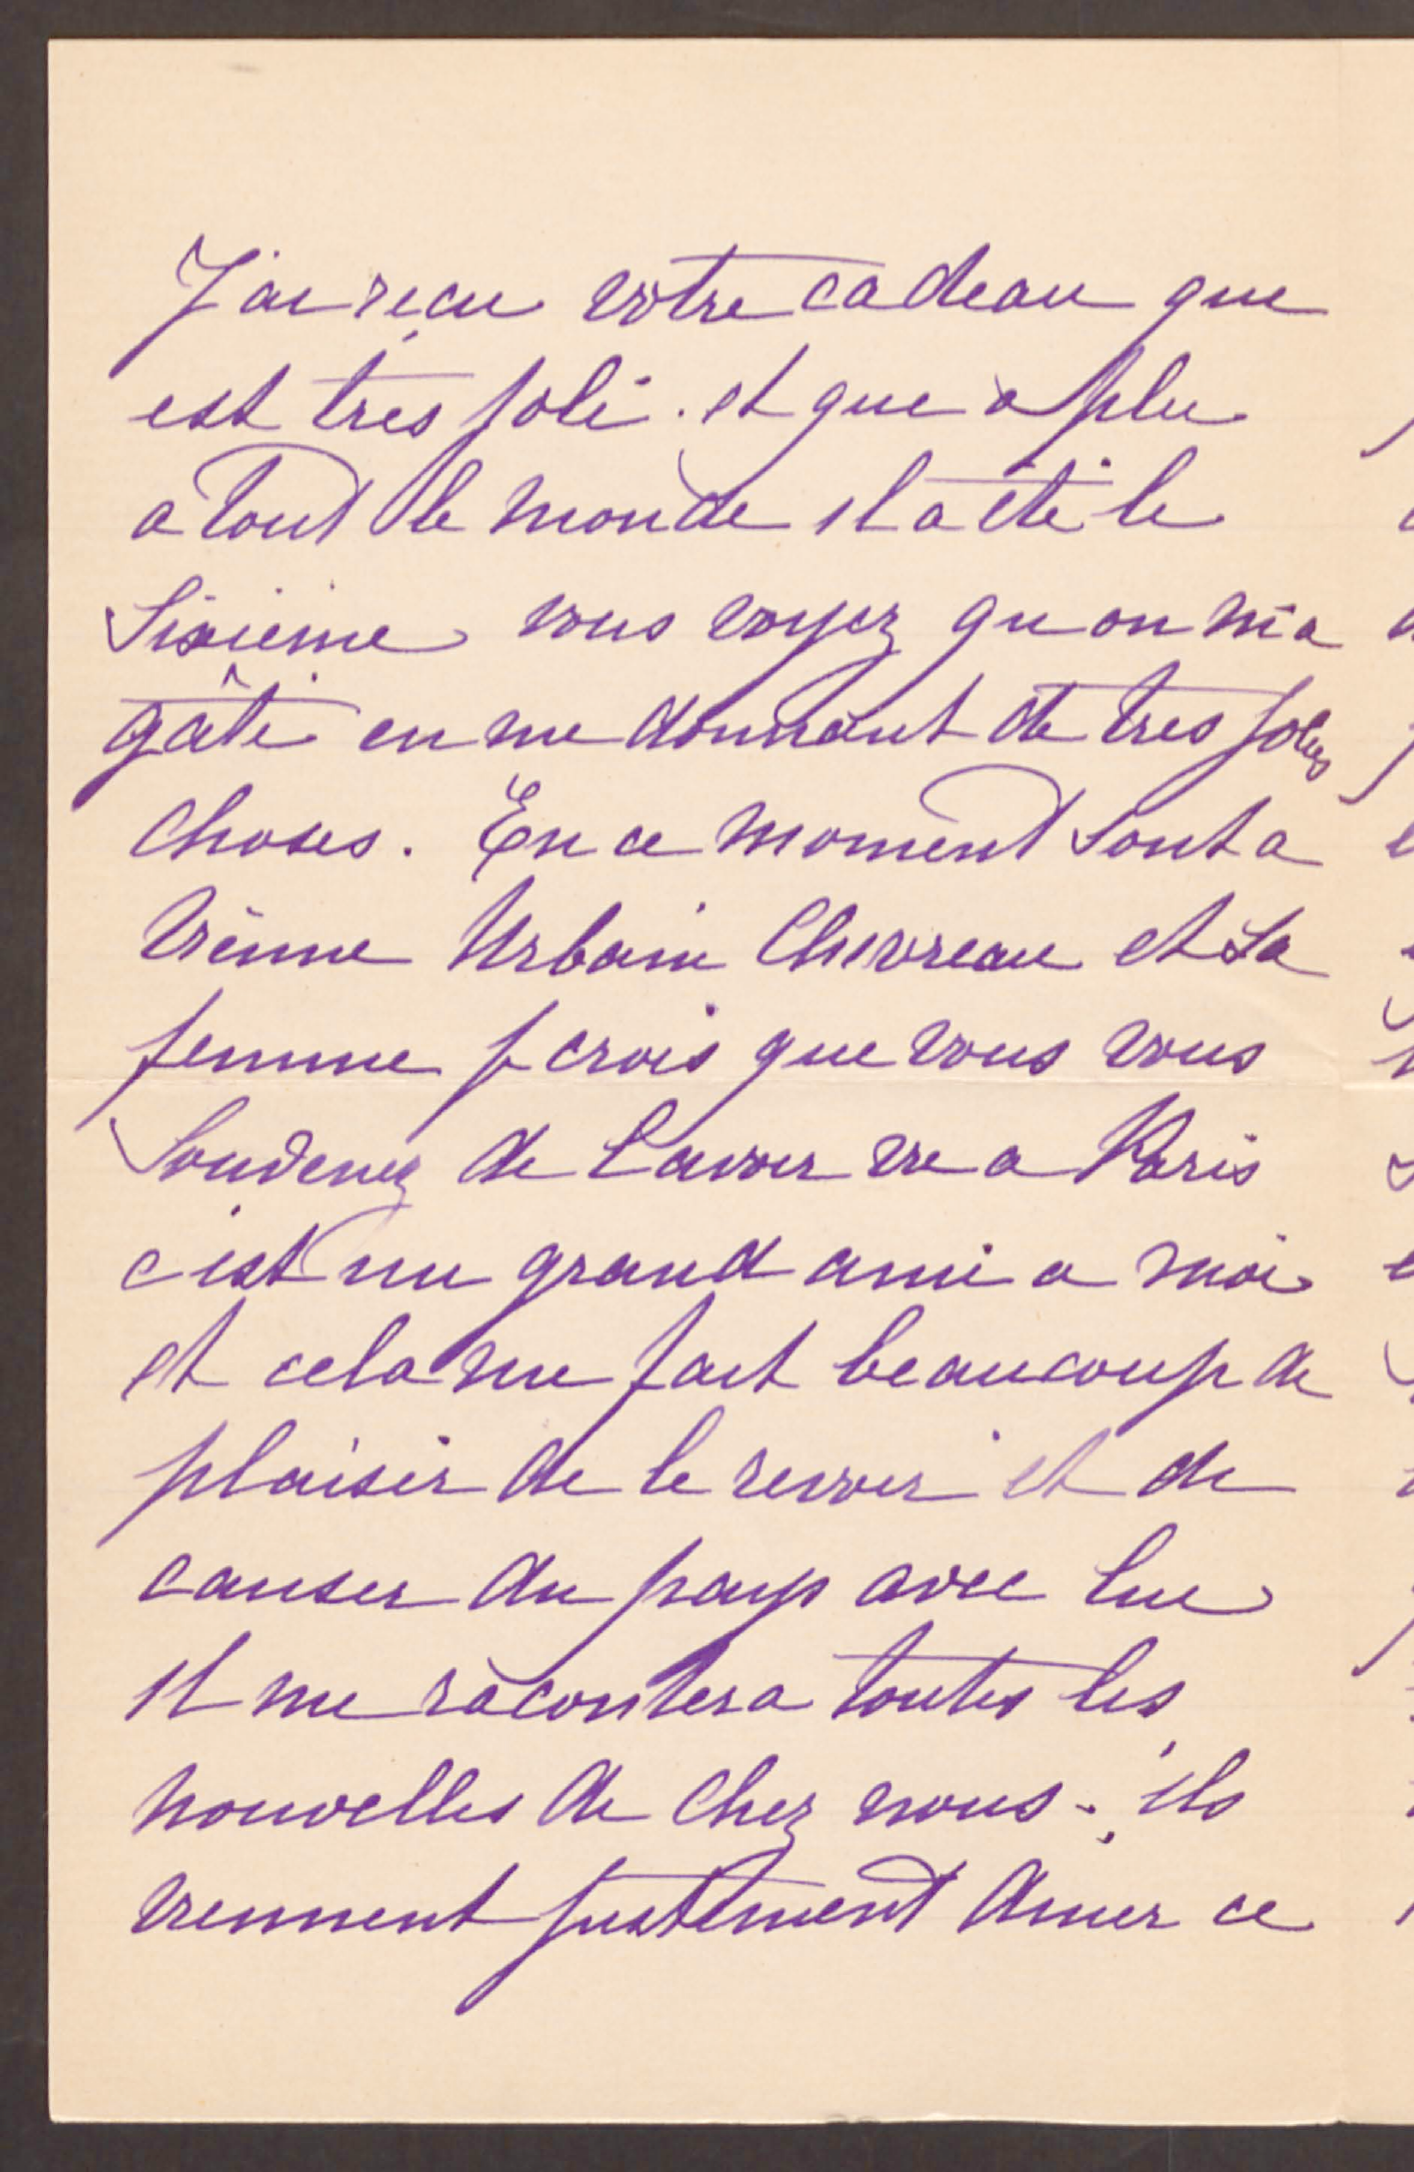 J'ai reçu votre cadeau qui
est très joli. et qui a plu
a tout le monde il a été le
Sixieme vous voyez qu on m'a
gâté en me donnant de tres jolies
choses. En ce moment sont a
Vienne Urbain Chevreau et sa
femme je crois que vous vous
Souvenez de l avoir vu a Paris
c'est un grand ami a moi
et cela me fait beaucoup de
plaisir de le revoir et de
causer du pays avec lui
il me racontera toutes les
nouvelles de chez nous - ils
viennent justement diner ce